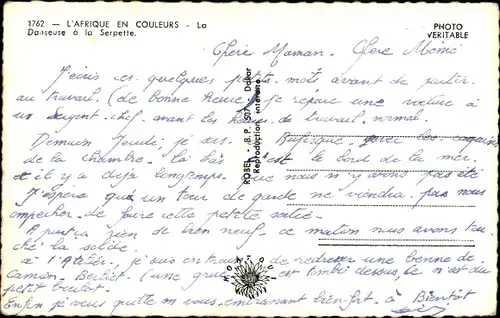 1762 — L'AFRIQUE EN COULEURS - La
Danseuse à la Serpette.
PHOTO
VERITABLE
Chère Maman. Chère Mémé
J'écris ces quelques petits mots avant de partir
au travail. (de bonne heure) je répare une voiture à
un sergent-chef avant les heures de travail normal.
Demain Jeudi, je vais à Rufisque avec les copains
de la chambre. Là bas, c'est le bord de la mer
et il y a déjà longtemps que nous n'y avons pas été
J'espère qu'un tour de garde ne viendra pas nous
empêcher de faire cette petite sortie.
A part ça rien de bien neuf. ce matin nous avons tou
ché la solde.
à l'Atelier, je suis en train de redresser une benne de
camion Berliet. (une grue est tombée dessus, ce n'est du
petit boulot.
Enfin je vous quitte en vous embrassant bien fort. à Bientôt
ROBEL, B.P. 507 - Dakar
Reproduction interdite